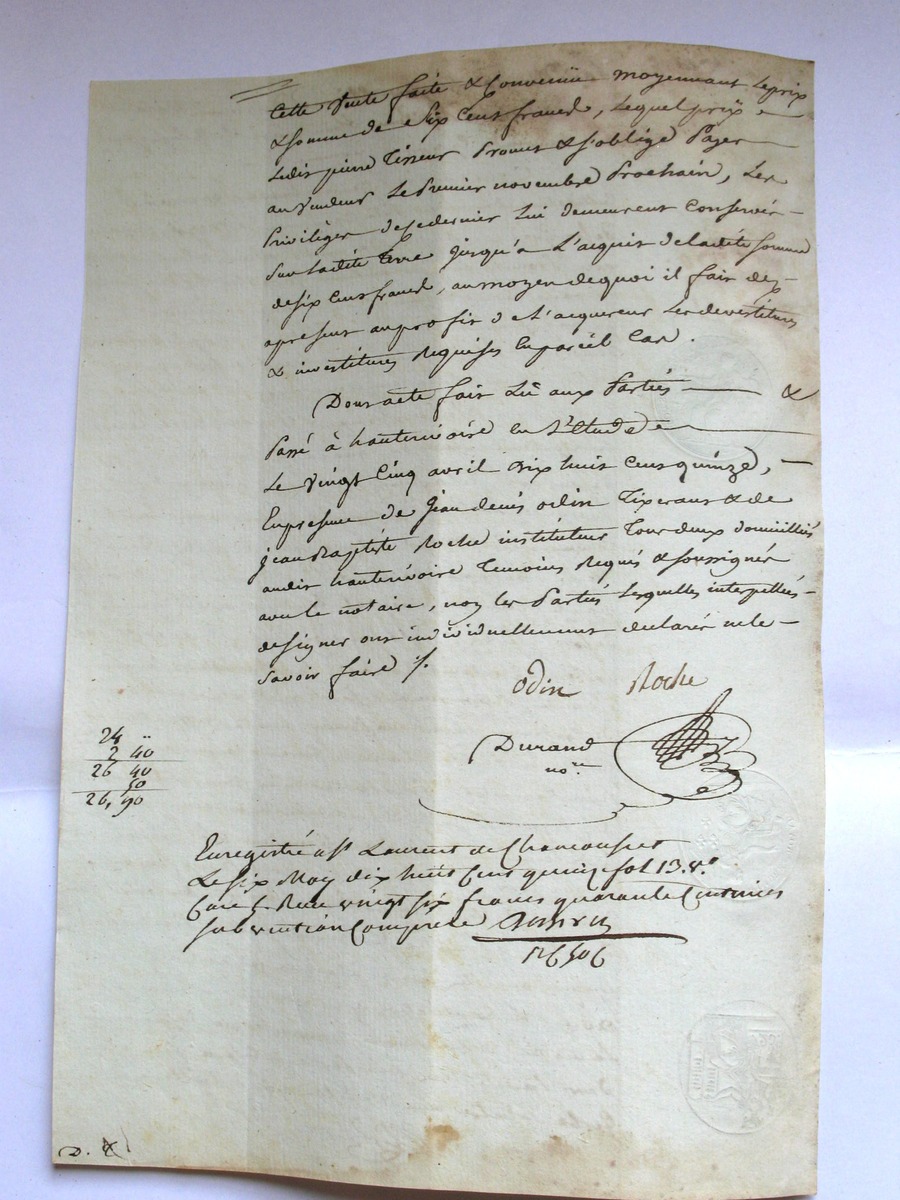 Cette vente faite & Convenüe moyennant le prix
& somme de Six Cent francs, Lequel prix
Ledit pierre Tisseur Promet & s'oblige Payer
au Vendeur Le Premier novembre Prochain, Les
Privilèges de ce dernier Lui demeurent Conservés
Sur ladite Terre jusqu'a L'acquit de ladite Somme
de six Cent francs, au moyen de quoi il fait dez
apresent au profit de L'acquereur Les devestitures
& investitures Requises En pareil Cas.
Dont acte fait Lû aux Parties &
Passé à hauterivoire en L'Etude
Le Vingt Cinq avril dix huit Cent quinze,
En presence de Jean denis odin Tixerant & de
Jean Baptiste Roche instituteur Tous deux domiciliés
audit hauterivoire Temoins Requis & soussignés
avec le notaire, non les Parties Lesquelles interpellés
de signer ont individuellement declarés ne le
Savoir faire ./.
Odin Roche
24 "
2 40
26 40
50
26,90
Durand
nore
Enregistré a St Laurent de Chamousset
Le six May dix huit Cent quinze fol 13 vo
Case 5 Reçu vingt six francs quarante Centimes
subvention Comprise
D. &